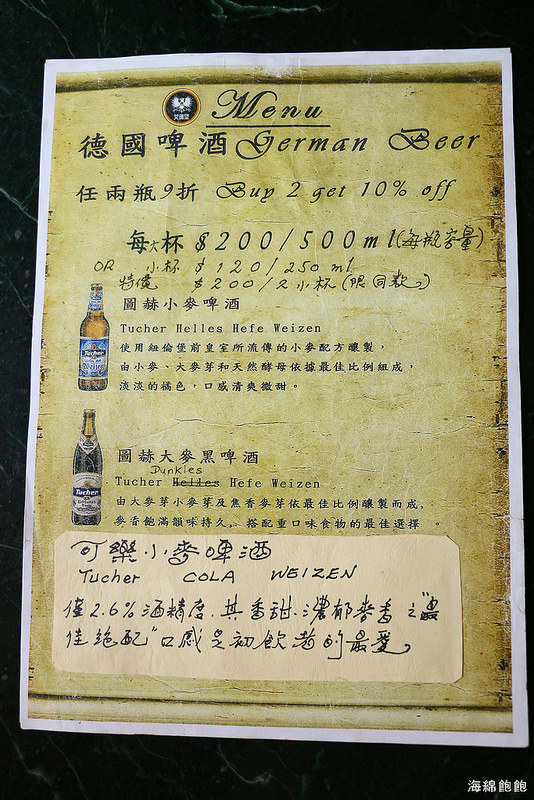 Menu
德國啤酒German Beer
任兩瓶9折 Buy 2 get 10% off
每大杯$200/500ml(每瓶容量)
OR 小杯 $120/250 ml
特價 $200/2小杯(限同款)
圖赫小麥啤酒
Tucher Helles Hefe Weizen
使用紐倫堡前皇室所流傳的小麥配方釀製,
由小麥、大麥芽和天然酵母依據最佳比例組成,
淡淡的橘色,口感清爽微甜。
Tucher
圖赫大麥黑啤酒
Dunkles
Tucher Helles Hefe Weizen
由大麥芽小麥芽及焦香麥芽依最佳比例釀製而成,
麥香飽滿韻味持久,搭配重口味食物的最佳選擇。
Tucher
可樂小麥啤酒
Tucher COLA WEIZEN
僅2.6%酒精度.其香甜.濃郁麥香之"最
佳絶配"口感是初飲者的最愛。
海綿飽飽